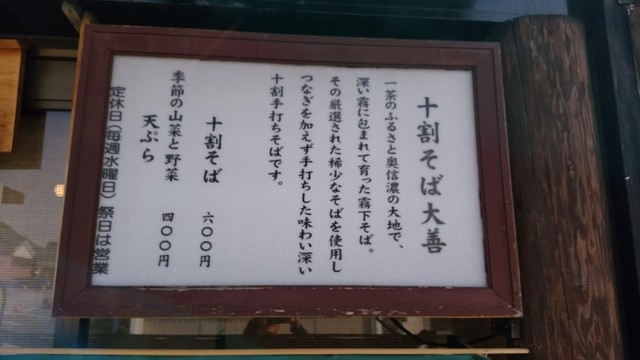 十割そば大善
一茶のふるさと奥信濃の大地で、
深い霧に包まれて育った霧下そば。
その厳選された稀少なそばを使用し
つなぎを加えず手打ちした味わい深い
十割手打ちそばです。
十割そば 六〇〇円
季節の山菜と野菜
天ぷら 四〇〇円
定休日(毎週水曜日) 祭日は営業